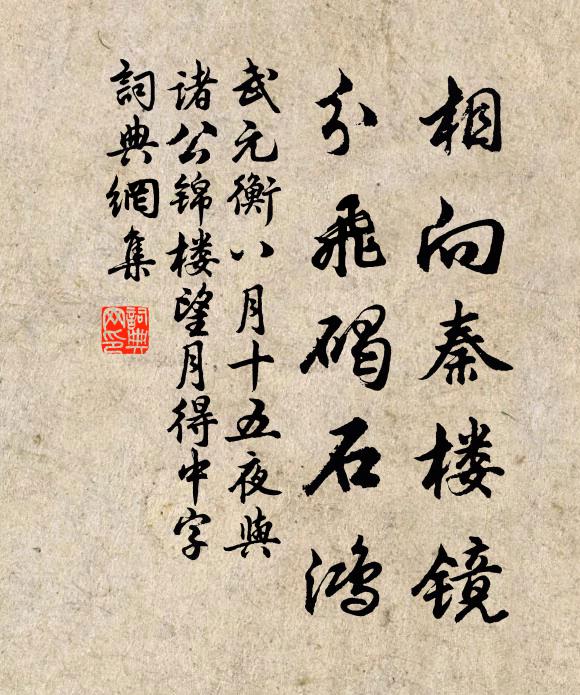 相向秦楼镜
分飞碣石鸿
武元衡八月十五夜与
诸公锦楼望月得中字
詞典網集
詞典网印